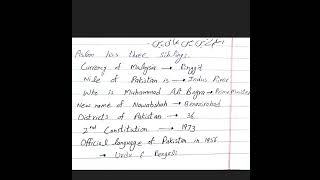 Aslam has three siblings.
Currency of Malaysia → Ringgit
Nile of Pakistan is → Indus River
Who is Muhammad Ali Bogra → Prime Minister
New name of Nawabshah → Benazirabad
Districts of Pakistan → 36
2nd Constitution → 1973
Official language of Pakistan in 1956
→ Urdu & Bengali